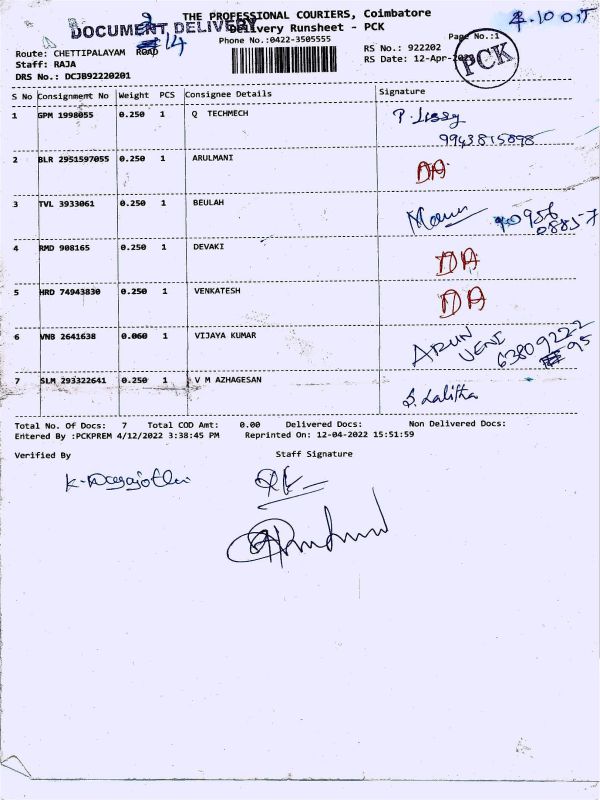 THE PROFESSIONAL COURIERS, Coimbatore
DOCUMENT, DELIVERY
Delivery Runsheet - PCK
4.10 OJT
Phone No.:0422-3505555
Page No.:1
14
PCK
Route: CHETTIPALAYAM ROAD
RS No.: 922202
Staff: RAJA
RS Date: 12-Apr-2022
DRS No.: DCJB92220201
S No Consignment No Weight PCS Consignee Details Signature
1 GPM 1998055 0.250 1 Q TECHMECH P. Lissy
9943815898
2 BLR 2951597055 0.250 1 ARULMANI DA
3 TVL 3933061 0.250 1 BEULAH
4 RMD 908165 0.250 1 DEVAKI DA
5 HRD 74943830 0.250 1 VENKATESH DA
6 VNB 2641638 0.060 1 VIJAYA KUMAR ARUN
63809222
95
7 SLM 293322641 0.250 1 V M AZHAGESAN S. Lalitha
Total No. Of Docs: 7 Total COD Amt: 0.00 Delivered Docs: Non Delivered Docs:
Entered By :PCKPREM 4/12/2022 3:38:45 PM Reprinted On: 12-04-2022 15:51:59
Verified By Staff Signature